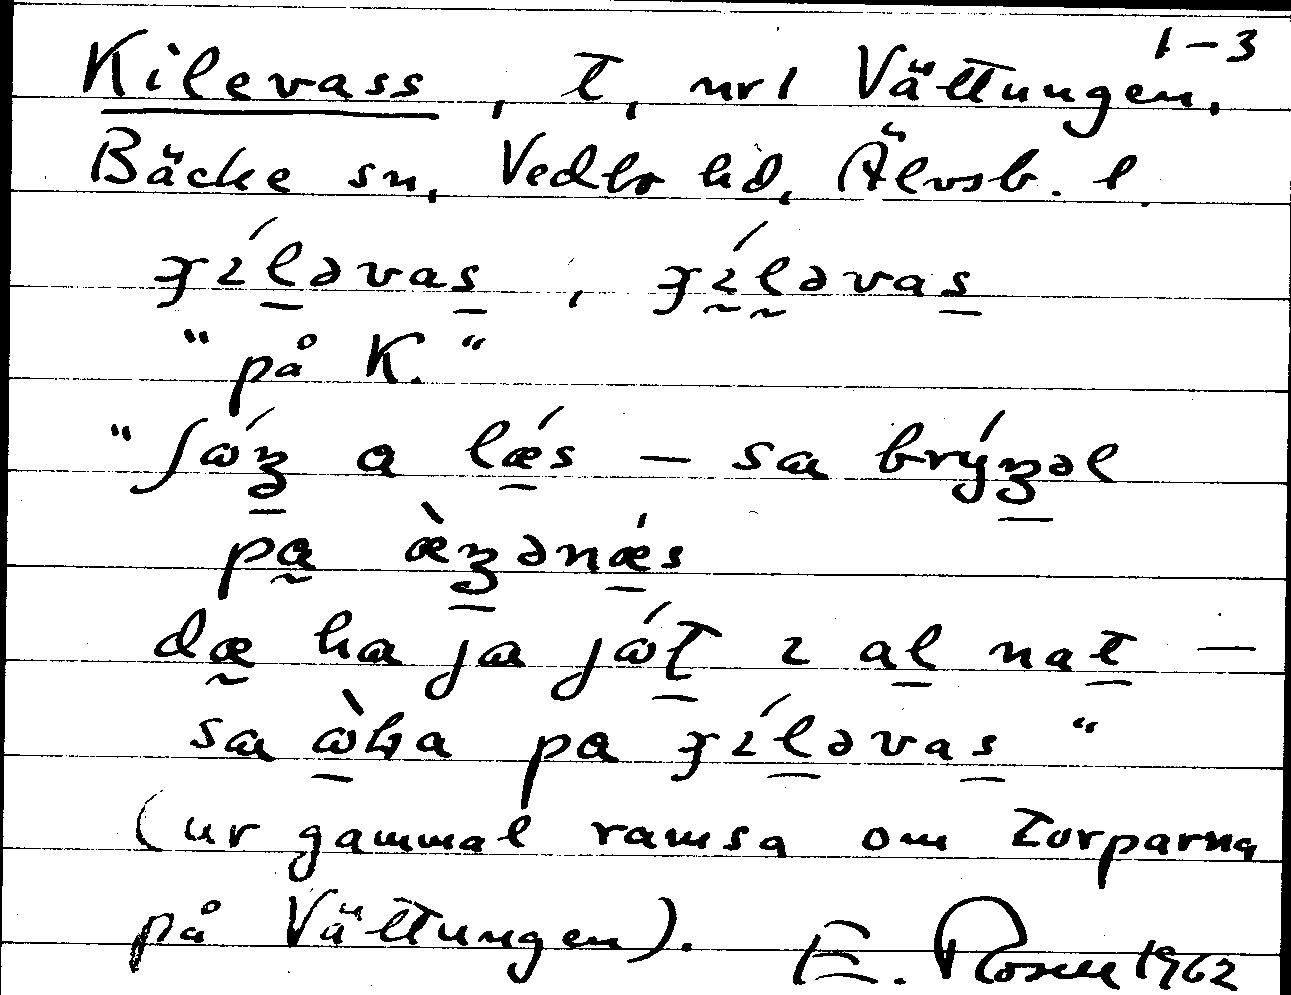 1-3
Kilevass, t, nr 1 Vättungen,
Bäcke sn, Vedbo hd, Älvsb. l.
ʒɪ́ləvas, ʒɪ́ləvas
"på K."
"ʃɷ́ʒ a lǽs — sa brýʒəl
pa æ̀ʒənǽs
dæ ha ja jɷ́t ɪ al nat —
sa ɷ̀ka pa ʒɪ́ləvas"
(ur gammal ramsa om torparna
på Vättungen). E. Rosell 1962